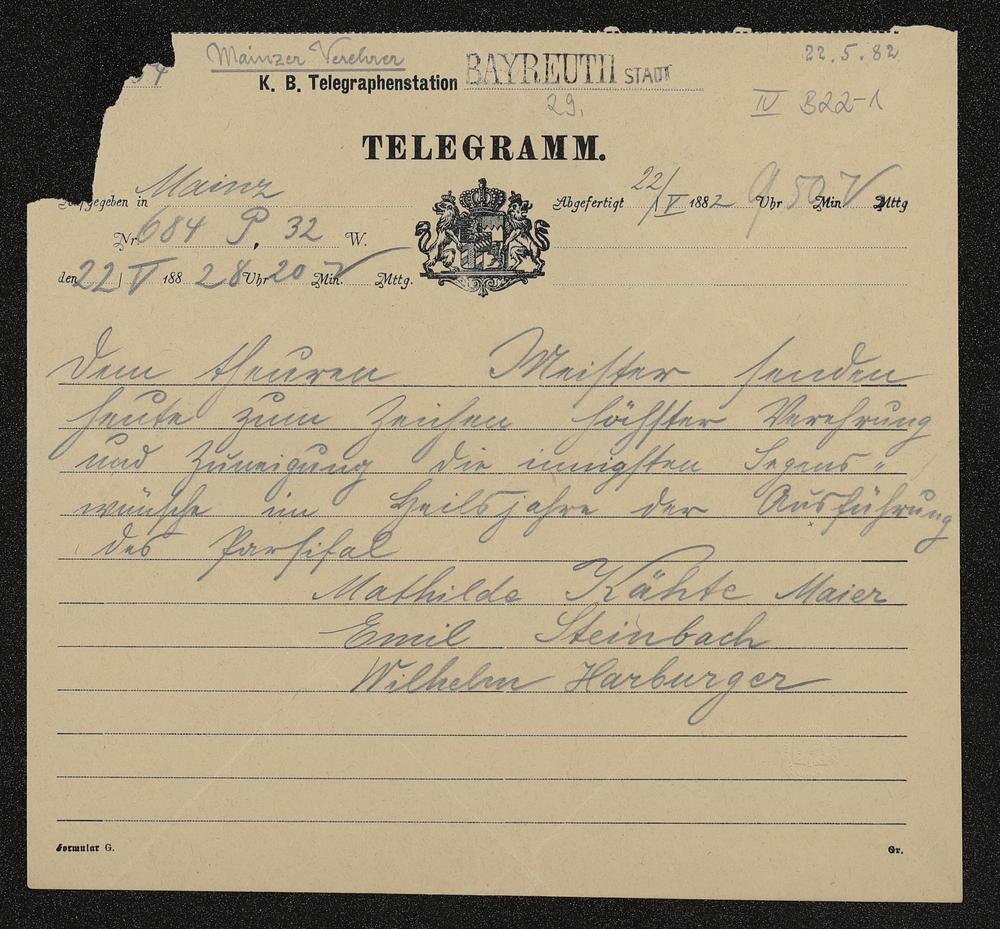 Mainzer Verehrer
22.5.82
K. B. Telegraphenstation BAYREUTH STADT
29.
IV B22-1
TELEGRAMM.
Aufgegeben in Mainz
Abgefertigt 22/V 1882 9 Uhr 50 Min V Mttg
Nr. 684 P, 32 W.
den 22/V 188 2 8 Uhr 20 Min. V Mttg.
Dem theuren Meister senden
heute zum Zeichen höchster Verehrung
und Zuneigung die innigsten Segens"
wünsche im Heilsjahre der Ausführung
des Parsifal
Mathilde Kähte Maier
Emil Steinbach
Wilhelm Harburger
Formular G.
Gr.